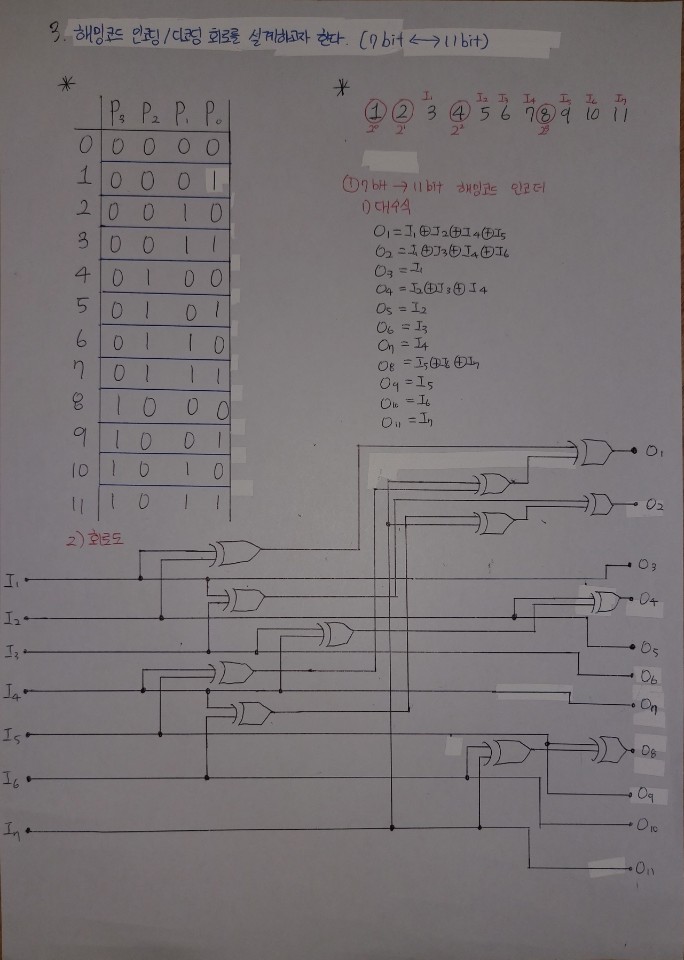 3. 해밍코드 인코딩/디코딩 회로를 설계하고자 한다. (7bit ⟷ 11bit)
* *
P₃ P₂ P₁ P₀
0 0 0 0 0
1 0 0 0 1
2 0 0 1 0
3 0 0 1 1
4 0 1 0 0
5 0 1 0 1
6 0 1 1 0
7 0 1 1 1
8 1 0 0 0
9 1 0 0 1
10 1 0 1 0
11 1 0 1 1
I₁ I₂ I₃ I₄ I₅ I₆ I₇
① ② 3 ④ 5 6 7 ⑧ 9 10 11
2⁰ 2¹ 2² 2³
① 7bit → 11bit 해밍코드 인코더
1) 대수식
O₁ = I₁⊕I₂⊕I₄⊕I₅
O₂ = I₁⊕I₃⊕I₄⊕I₆
O₃ = I₁
O₄ = I₂⊕I₃⊕I₄
O₅ = I₂
O₆ = I₃
O₇ = I₄
O₈ = I₅⊕I₆⊕I₇
O₉ = I₅
O₁₀ = I₆
O₁₁ = I₇
2) 회로도
I₁
I₂
I₃
I₄
I₅
I₆
I₇
O₁
O₂
O₃
O₄
O₅
O₆
O₇
O₈
O₉
O₁₀
O₁₁